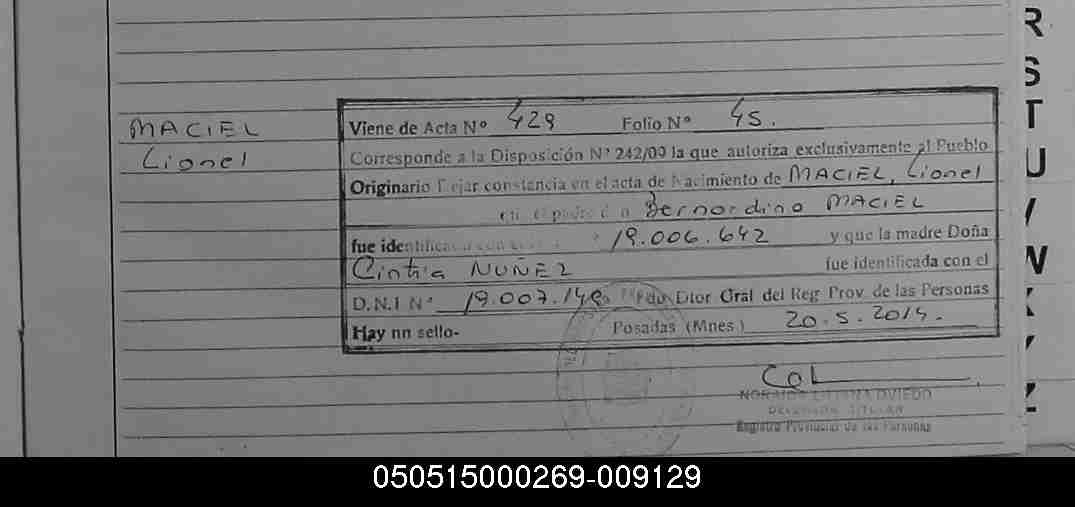 MACIEL
Lionel
Viene de Acta Nº 429 Folio Nº 45.
Corresponde a la Disposición Nº 242/09 la que autoriza exclusivamente al Pueblo
Originario Dejar constancia en el acta de Nacimiento de MACIEL, Lionel
en el padre Bernardino MACIEL
fue identificado con 19.006.642 y que la madre Doña
Cintia NUÑEZ fue identificada con el
D.N.I Nº Fdo Dtor Gral del Reg Prov. de las Personas
Hay nn sello- Posadas (Mnes)
NORAIDE LILIANA OVIEDO
DELEGADA TITULAR
Registro Provincial de las Personas
R
S
T
U
V
W
X
Y
Z
050515000269-009129